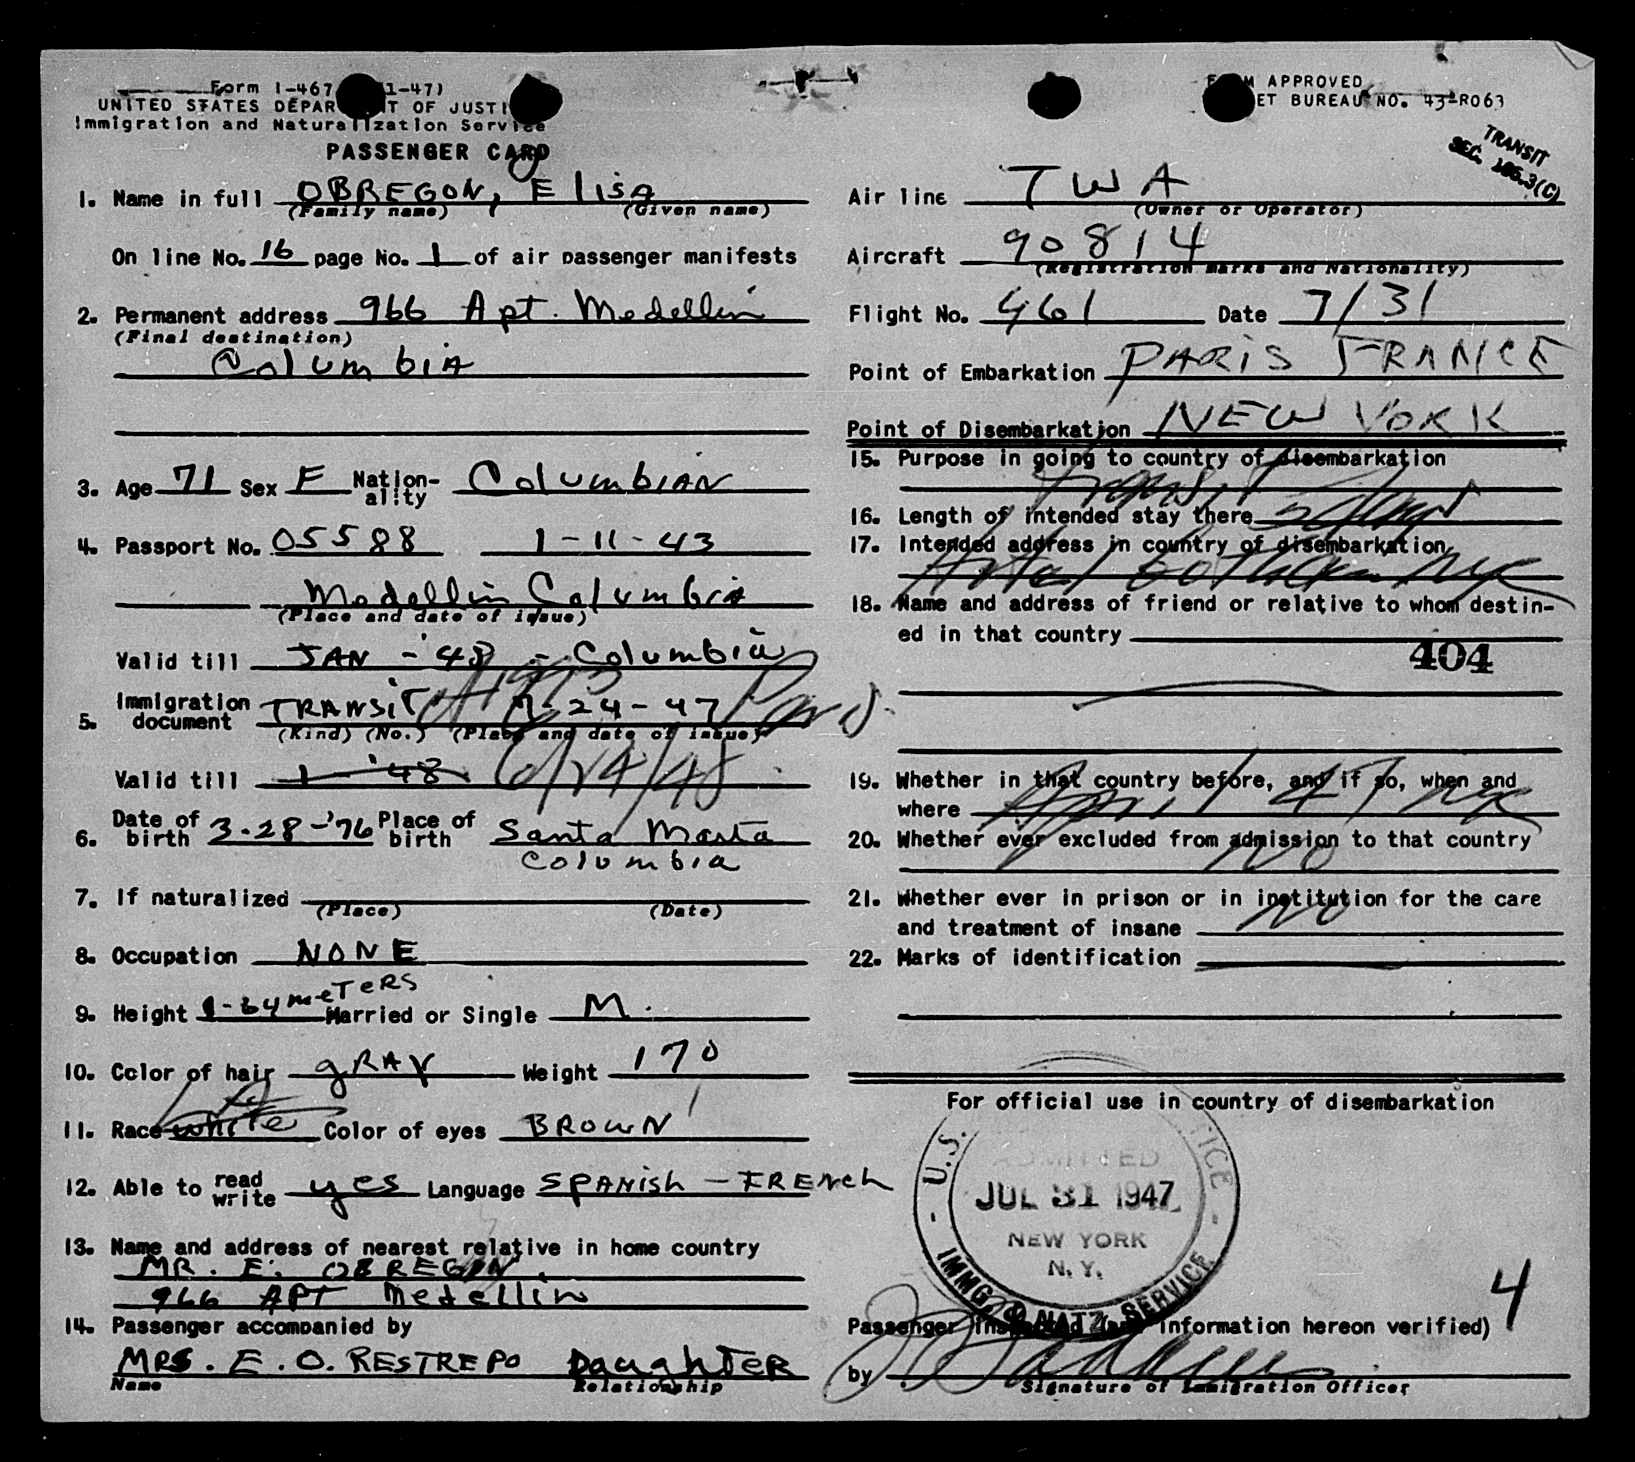 Form I-467 1-47)
UNITED STATES DEPAR T OF JUSTI
Immigration and Naturalization Service
PASSENGER CARD
FORM APPROVED
ET BUREAU NO. 43-R063
TRANSIT
SEC. 105.3(C)
1. Name in full OBREGON, Elisa
(Family name) (Given name)
On line No. 16 page No. 1 of air passenger manifests
2. Permanent address 966 Apt. Medellin
(Final destination)
Columbia
3. Age 71 Sex F Nation-ality Columbian
4. Passport No. 05588 1-11-43
Medellin Columbia
(Place and date of issue)
Valid till JAN - '48 - Columbia
5. Immigration document TRANSIT 7-24-47 Paris
(Kind) (No.) (Place and date of issue)
Valid till 1 - '48 6/24/48
6. Date of birth 3-28-'76 Place of birth Santa Marta
Columbia
7. If naturalized
(Place) (Date)
8. Occupation NONE
9. Height meTeRS Married or Single M.
10. Color of hair gRAY Weight 170
11. Race white Color of eyes BROWN
12. Able to read write yes Language SPANish - FRENch
13. Name and address of nearest relative in home country
MR. E. OBREGON
966 APT Medellin
14. Passenger accompanied by
MRS. E. O. RESTREPO DaughTeR
Name Relationship
Air line TWA
(Owner or Operator)
Aircraft 90814
(Registration marks and Nationality)
Flight No. 461 Date 7/31
Point of Embarkation PARIS FRANCE
Point of Disembarkation NEW YORK
15. Purpose in going to country of disembarkation
Transit
16. Length of intended stay there 3 days
17. Intended address in country of disembarkation
Hotel NYC
18. Name and address of friend or relative to whom destin-
ed in that country
404
19. Whether in that country before, and if so, when and
where April 47 NYC
20. Whether ever excluded from admission to that country
NO
21. Whether ever in prison or in institution for the care
and treatment of insane NO
22. Marks of identification
For official use in country of disembarkation
U.S. TICE
ADMITTED
JUL 31 1947
NEW YORK
N.Y.
IMMG. & NATZ. SERVICE
4
Passenger inspected (and information hereon verified)
by
Signature of Immigration Officer